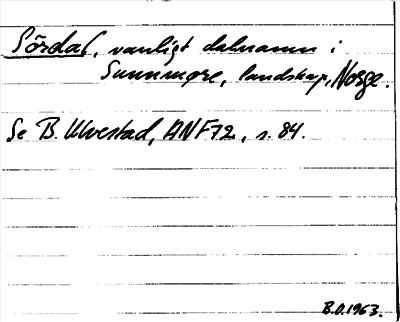 Sördal, vanligt dalnamn i
Sunnmøre, landskap, Norge.
Se B. Ulvestad, ANF72, s. 84.
B.O.1963.